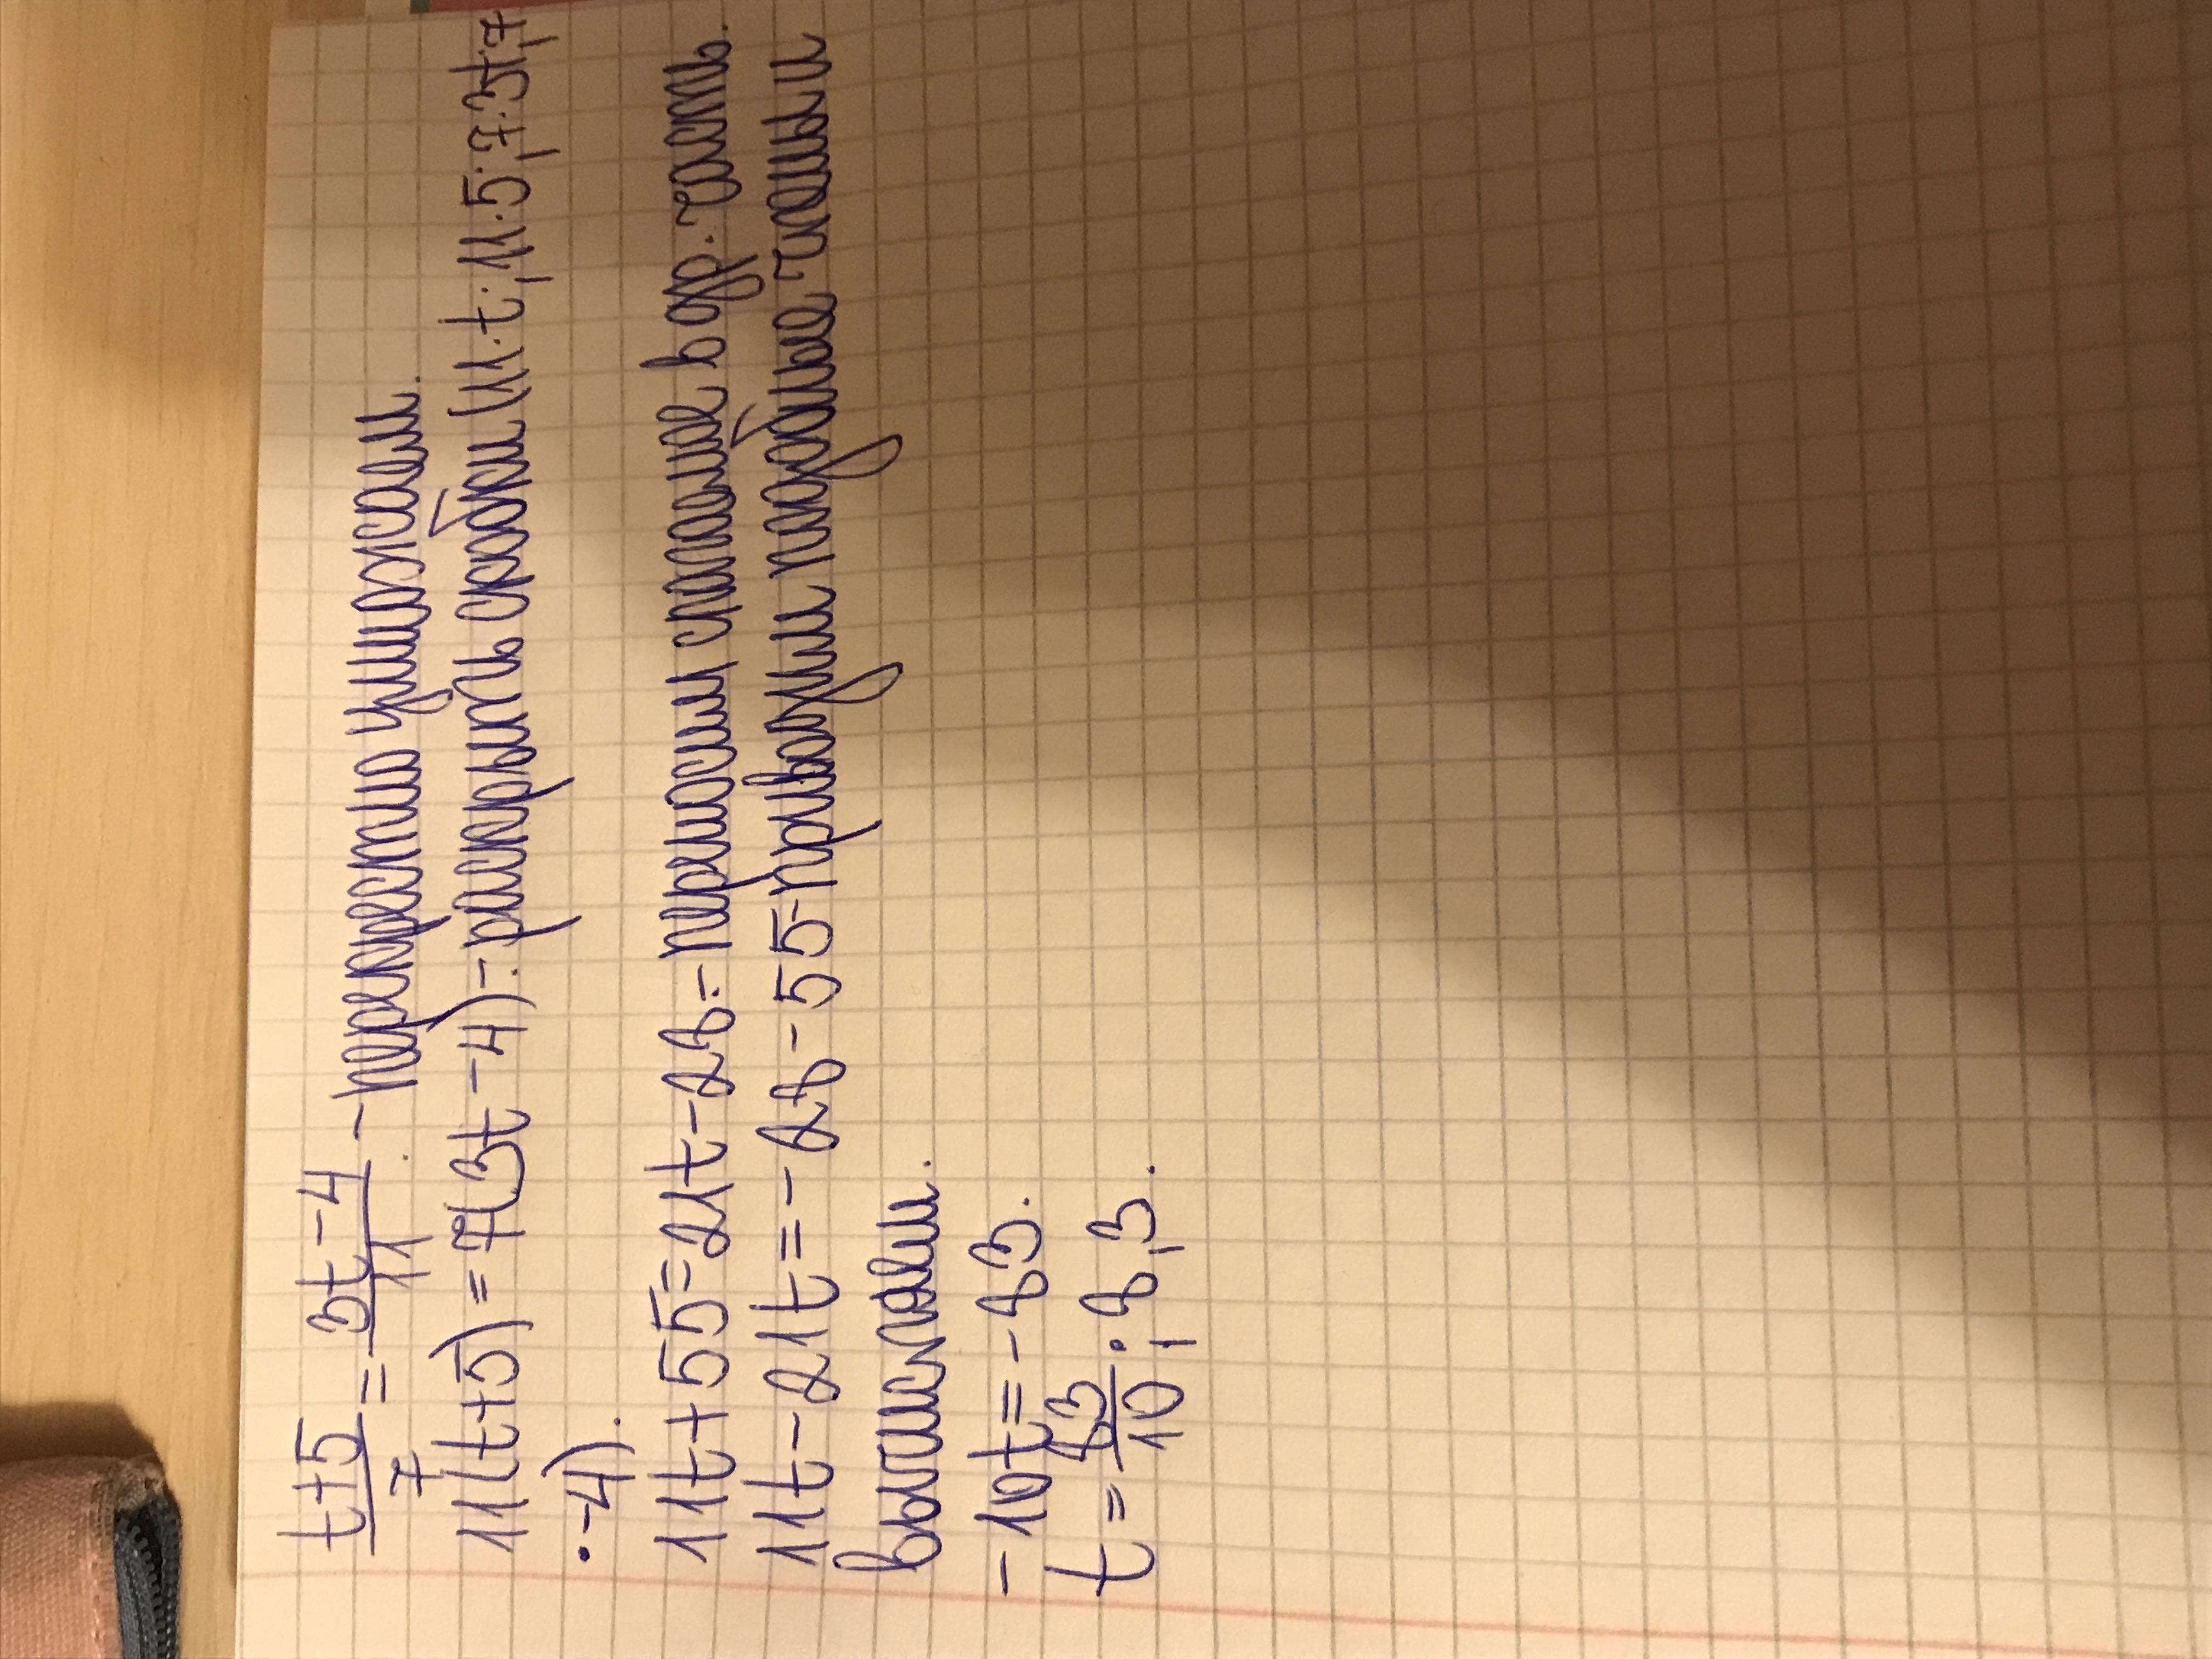 t+5/7 = 3t-4/11 - перекрестно умножаем.
11(t+5) = 7(3t-4) - раскрыть скобки (11·t; 11·5; 7·3t; 7
·-4).
11t+55=21t-28 - переносим слагаемое в др. часть.
11t-21t=-28-55-приводим подобные члены и
вычисляем.
-10t=-83.
t=83/10; 8,3.